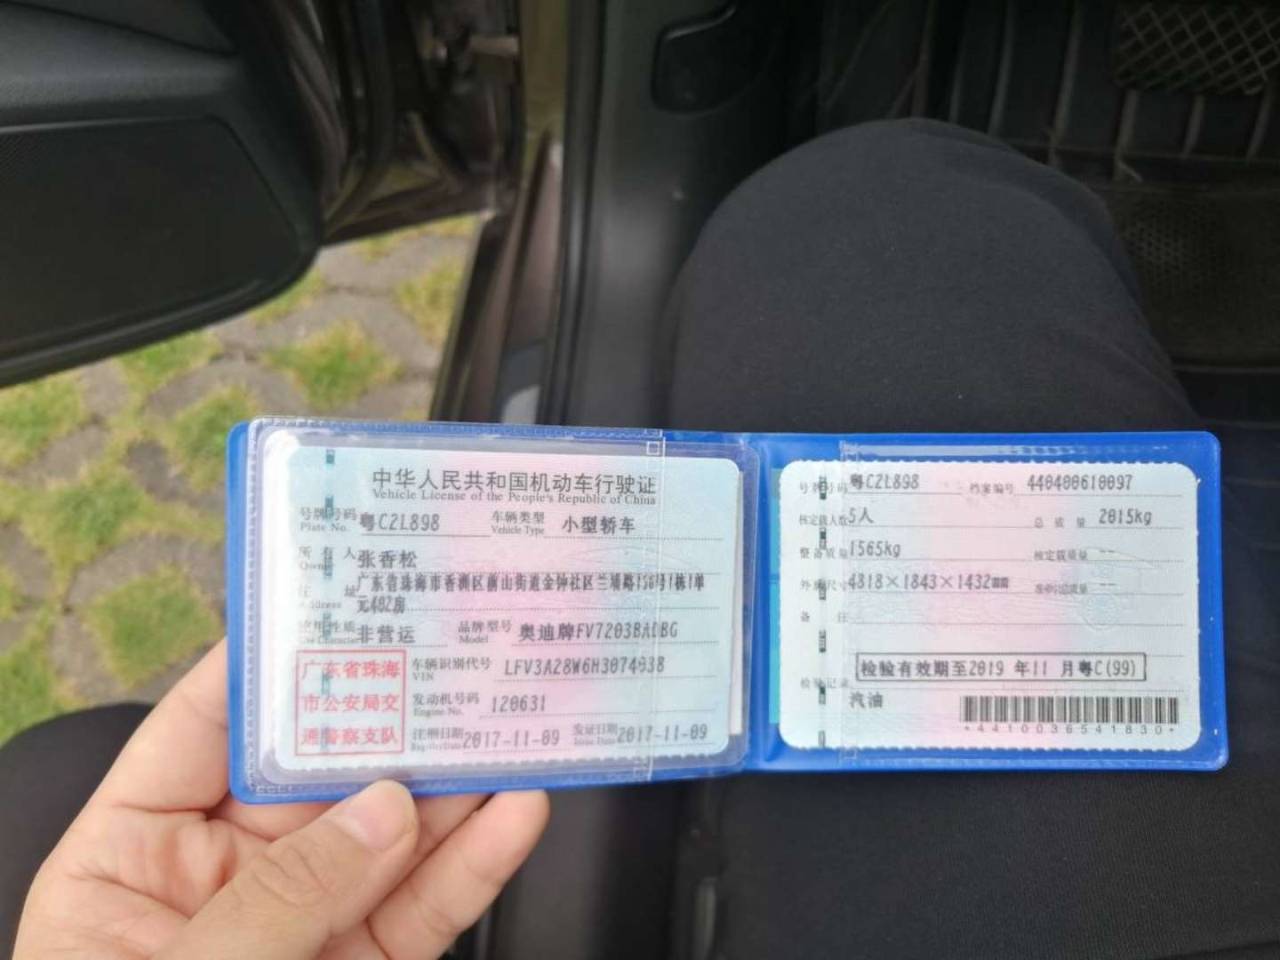 中华人民共和国机动车行驶证
Vehicle License of the People's Republic of China
号牌号码 Plate No. 粤C2L898 车辆类型 Vehicle Type 小型轿车
所有人 Owner 张香松
住址 Address 广东省珠海市香洲区前山街道金钟社区兰埔路156号1栋1单
元402房
使用性质 Use Character 非营运 品牌型号 Model 奥迪牌FV7203BADBG
广东省珠海
市公安局交
通警察支队
车辆识别代号 VIN LFV3A28W6H3074038
发动机号码 Engine No. 120631
注册日期 Register Date 2017-11-09 发证日期 Issue Date 2017-11-09
号牌号码 粤C2L898 档案编号 440400610097
核定载人数 5人 总质量 2015kg
整备质量 1565kg 核定载质量 --
外廓尺寸 4818×1843×1432mm 准牵引总质量 --
备注
检验记录 检验有效期至2019 年11 月粤C(99)
汽油
*4410036541830*